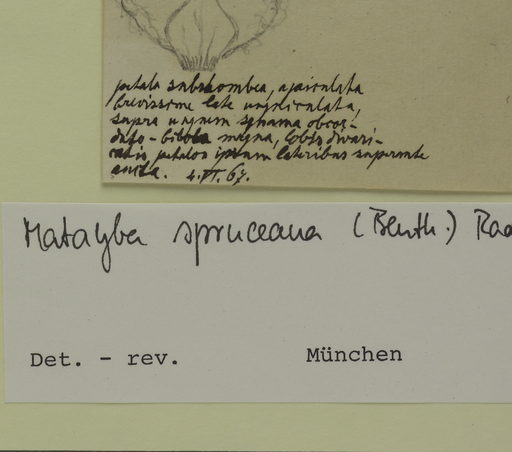 petala subrhombea, apiculata
brevissime late unguiculata,
supra unguem squama obcor-
dato-biloba magna, lobis divari-
catis petalos ipsum lateribus superante
aucta. 4.VI.67.
Matayba spruceana (Benth.) Rad
Det. - rev. München